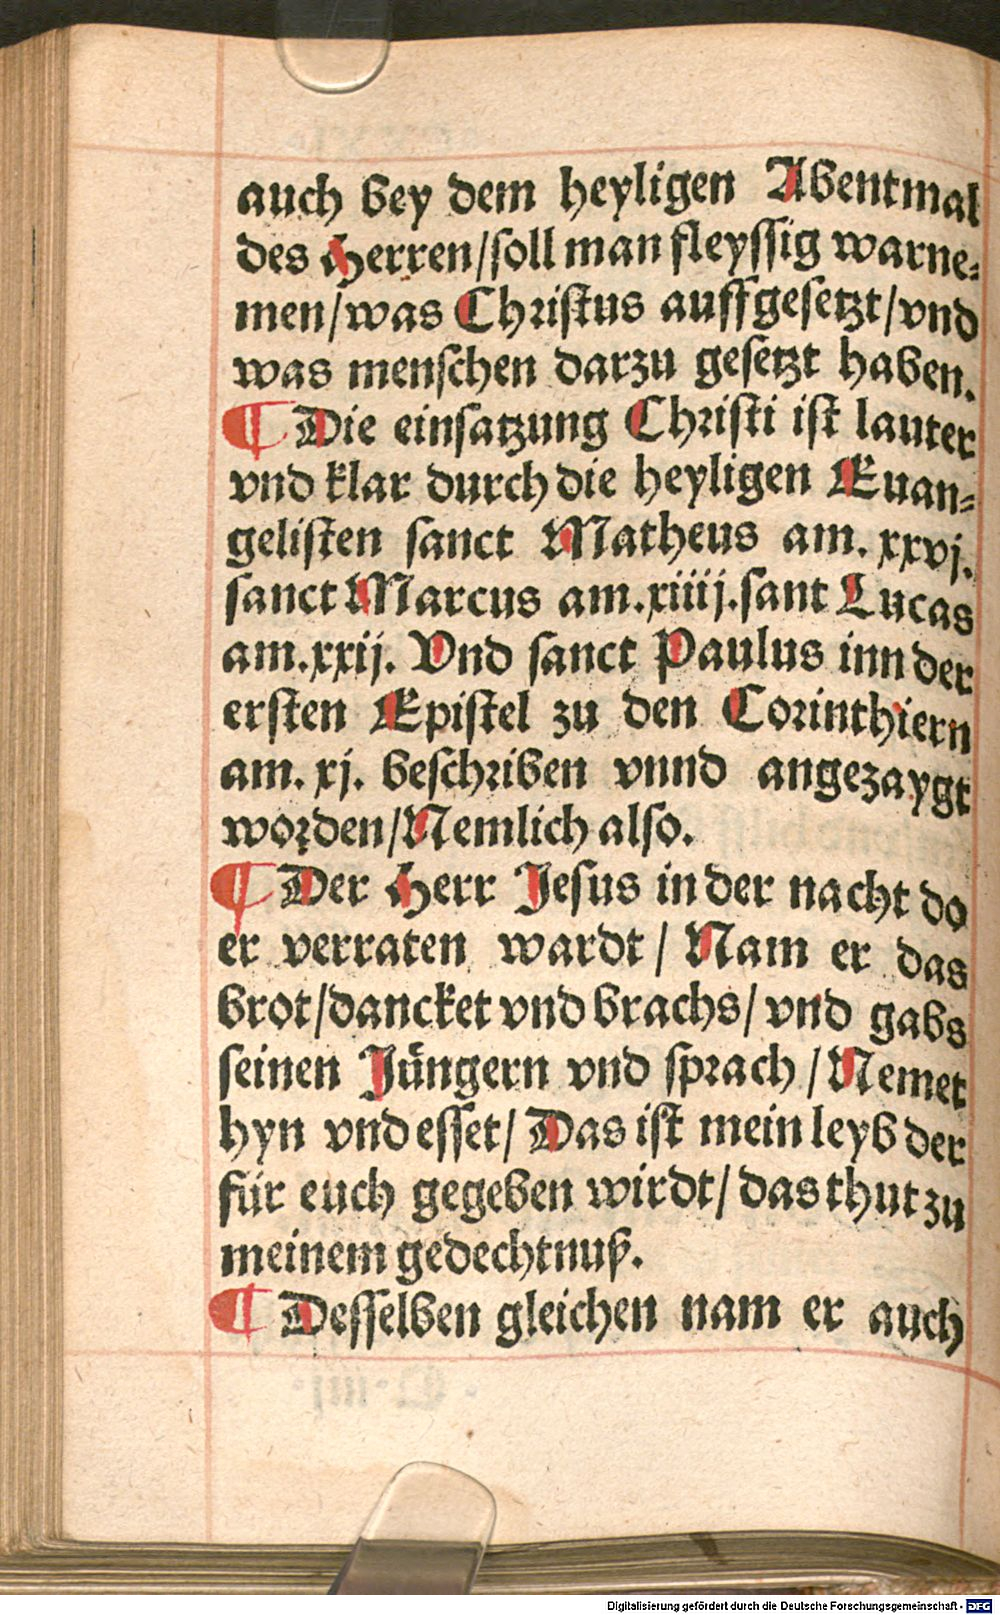 auch bey dem heyligen Abentmal
des Herren/soll man fleyssig warne⸗
men/was Christus auffgesetzt/vnd
was menschen darzu gesetzt haben.
¶ Die einsatzung Christi ist lauter
vnd klar durch die heyligen Euan⸗
gelisten sanct Matheus am. xxvj.
sanct Marcus am.xiiij.sant Lucas
am.xxij. Vnd sanct Paulus inn der
ersten Epistel zu den Corinthiern
am. xj. beschriben vnnd angezaygt
worden/Nemlich also.
¶ Der Herr Jesus in der nacht do
er verraten wardt/ Nam er das
brot/dancket vnd brachs/ vnd gabs
seinen Jüngern vnd sprach/Nemet
hyn vnd esset/ Das ist mein leyb der
für euch gegeben wirdt/ das thut zu
meinem gedechtnuß.
¶ Desselben gleichen nam er auch
Digitalisierung gefördert durch die Deutsche Forschungsgemeinschaft - DFG